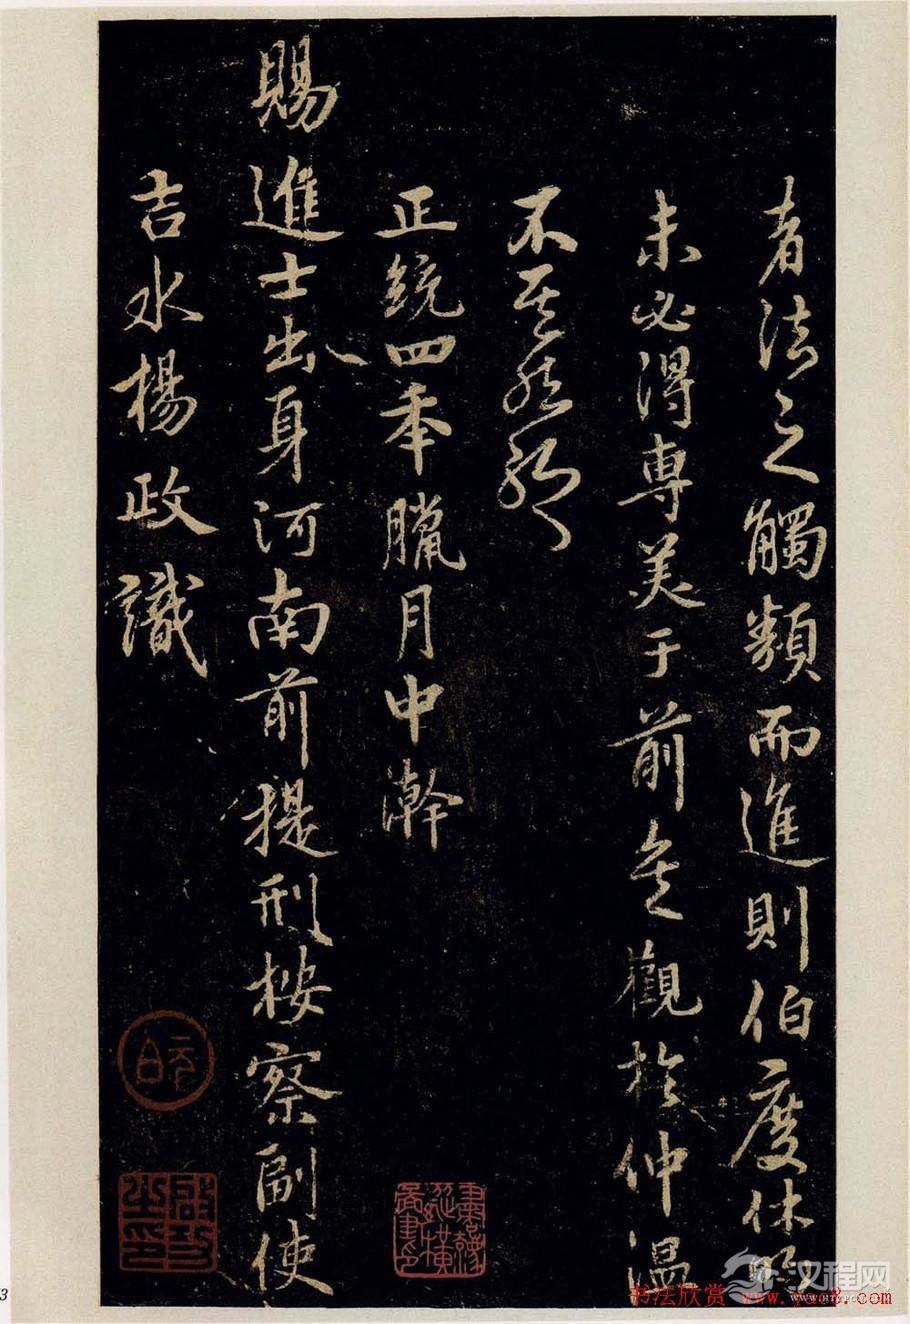 者法之觸類而進則伯度休明
未必得專美于前矣觀於仲溫
不其然歟
正統四年臘月中澣
賜進士出身河南前提刑按察副使
吉水楊政識
啟功之印
3
汉程网
书法欣赏 www.yac8.com